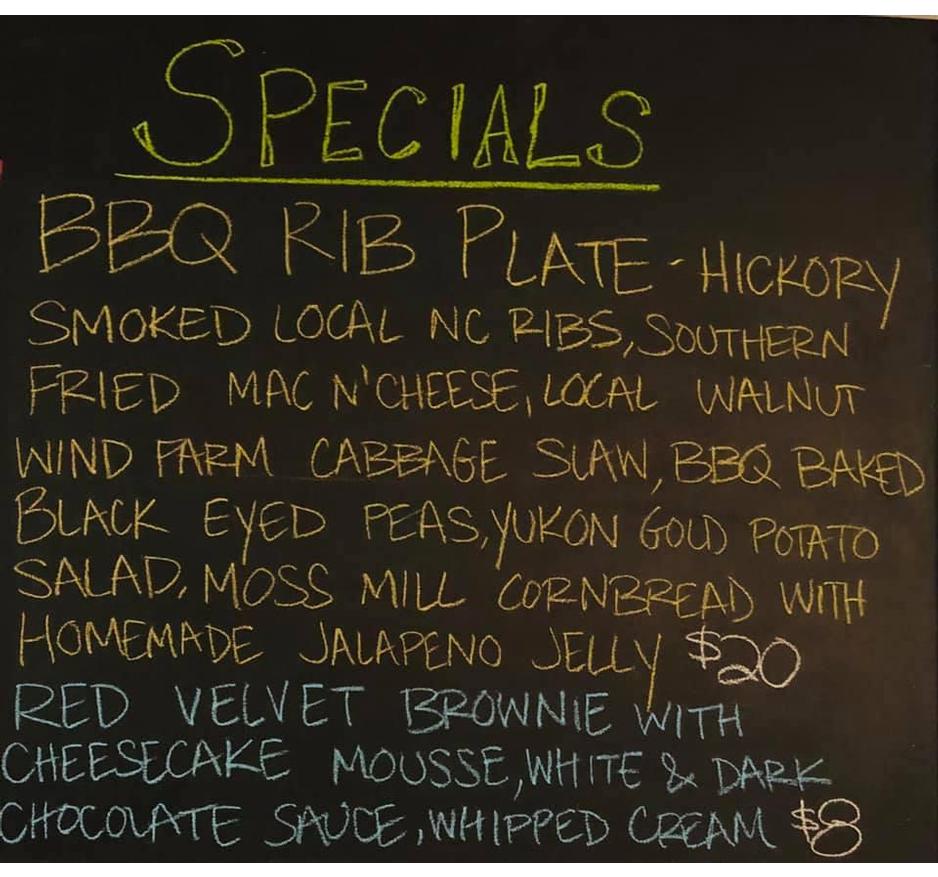 SPECIALS
BBQ RIB PLATE - HICKORY
SMOKED LOCAL NC RIBS, SOUTHERN
FRIED MAC N'CHEESE, LOCAL WALNUT
WIND FARM CABBAGE SLAW, BBQ BAKED
BLACK EYED PEAS, YUKON GOLD POTATO
SALAD, MOSS MILL CORNBREAD WITH
HOMEMADE JALAPENO JELLY $20
RED VELVET BROWNIE WITH
CHEESECAKE MOUSSE, WHITE & DARK
CHOCOLATE SAUCE, WHIPPED CREAM $8